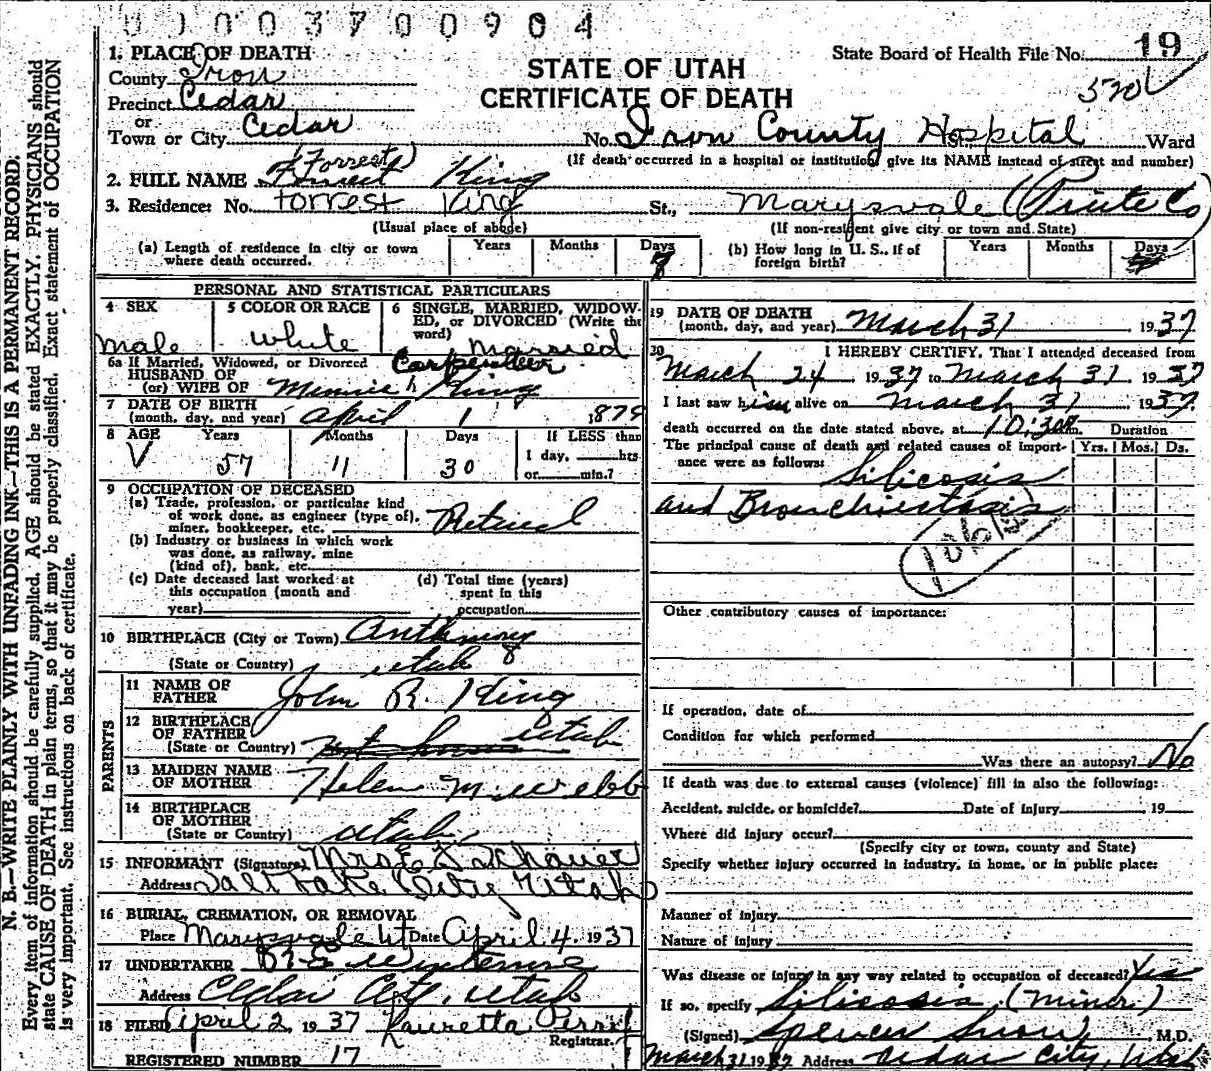 0003700904
1. PLACE OF DEATH
State Board of Health File No. 19
County Iron
STATE OF UTAH
520
Precinct Cedar
CERTIFICATE OF DEATH
or
Town or City Cedar
No. Iron County Hospital St., Ward
(If death occurred in a hospital or institution give its NAME instead of street and number)
(Forrest)
2. FULL NAME Forrest King
3. Residence: No. Forrest King St., Marysvale (Piute Co)
(Usual place of abode)
(If non-resident give city or town and State)
(a) Length of residence in city or town where death occurred. Years Months Days 7
(b) How long in U. S., if of foreign birth? Years Months Days
PERSONAL AND STATISTICAL PARTICULARS
4 SEX
male
5 COLOR OR RACE
white
6 SINGLE, MARRIED, WIDOWED, or DIVORCED (Write the word)
married
Carpenter
6a If Married, Widowed, or Divorced
HUSBAND OF
(or) WIFE OF Minnie King
7 DATE OF BIRTH
(month, day, and year) April 1 1879
8 AGE Years Months Days If LESS than
57 11 30
1 day, hrs
or min.?
9 OCCUPATION OF DECEASED
(a) Trade, profession, or particular kind
of work done, as engineer (type of),
miner, bookkeeper, etc. Retired
(b) Industry or business in which work
was done, as railway, mine
(kind of), bank, etc.
(c) Date deceased last worked at
this occupation (month and
year)
(d) Total time (years)
spent in this
occupation
10 BIRTHPLACE (City or Town) Anthony
(State or Country) Utah 8
PARENTS
11 NAME OF
FATHER John R. King
12 BIRTHPLACE
OF FATHER
(State or Country) Utah
13 MAIDEN NAME
OF MOTHER Helen M. Webb
14 BIRTHPLACE
OF MOTHER
(State or Country) Utah
15 INFORMANT (Signature) Mrs
Address Salt Lake City Utah
16 BURIAL, CREMATION, OR REMOVAL
Place Marysvale Ut Date April 4 1937
17 UNDERTAKER
Address Cedar City, Utah
18 FILED April 2, 1937 Lauretta Perry
Registrar.
REGISTERED NUMBER 17
19 DATE OF DEATH
(month, day, and year) March 31 1937
20 I HEREBY CERTIFY, That I attended deceased from
March 24 1937 to March 31 1937
I last saw him alive on March 31 1937
death occurred on the date stated above, at 10:30 Duration
The principal cause of death and related causes of importance were as follows: Yrs. Mos. Ds.
Silicosis
and Bronchiectasis
Other contributory causes of importance:
If operation, date of
Condition for which performed
Was there an autopsy? No
If death was due to external causes (violence) fill in also the following:
Accident, suicide, or homicide? Date of injury 19
Where did injury occur?
(Specify city or town, county and State)
Specify whether injury occurred in industry, in home, or in public place:
Manner of injury
Nature of injury
Was disease or injury in any way related to occupation of deceased? Yes
If so, specify Silicosis (Miner)
(Signed) Spencer Snow, M.D.
March 31 1937 Address Cedar City, Utah
N. B.—WRITE PLAINLY WITH UNFADING INK—THIS IS A PERMANENT RECORD.
Every item of information should be carefully supplied. AGE should be stated EXACTLY. PHYSICIANS should
state CAUSE OF DEATH in plain terms, so that it may be properly classified. Exact statement of OCCUPATION
is very important. See instructions on back of certificate.